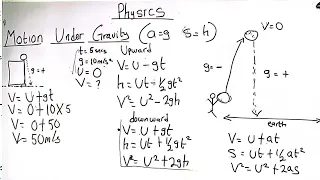 Physics
Motion Under Gravity (a=g S=h)
t = 5 secs
g = 10 m/s²
U = 0
V = ?
g = +
V = U + gt
V = 0 + 10 x 5
V = 0 + 50
V = 50 m/s
Upward
V = U - gt
h = Ut + ½ gt²
V² = U² - 2gh
downward
V = U + gt
h = Ut + ½ gt²
V² = U² + 2gh
V = 0
g = -
g = +
earth
V = U + at
S = Ut + ½ at²
V² = U² + 2as